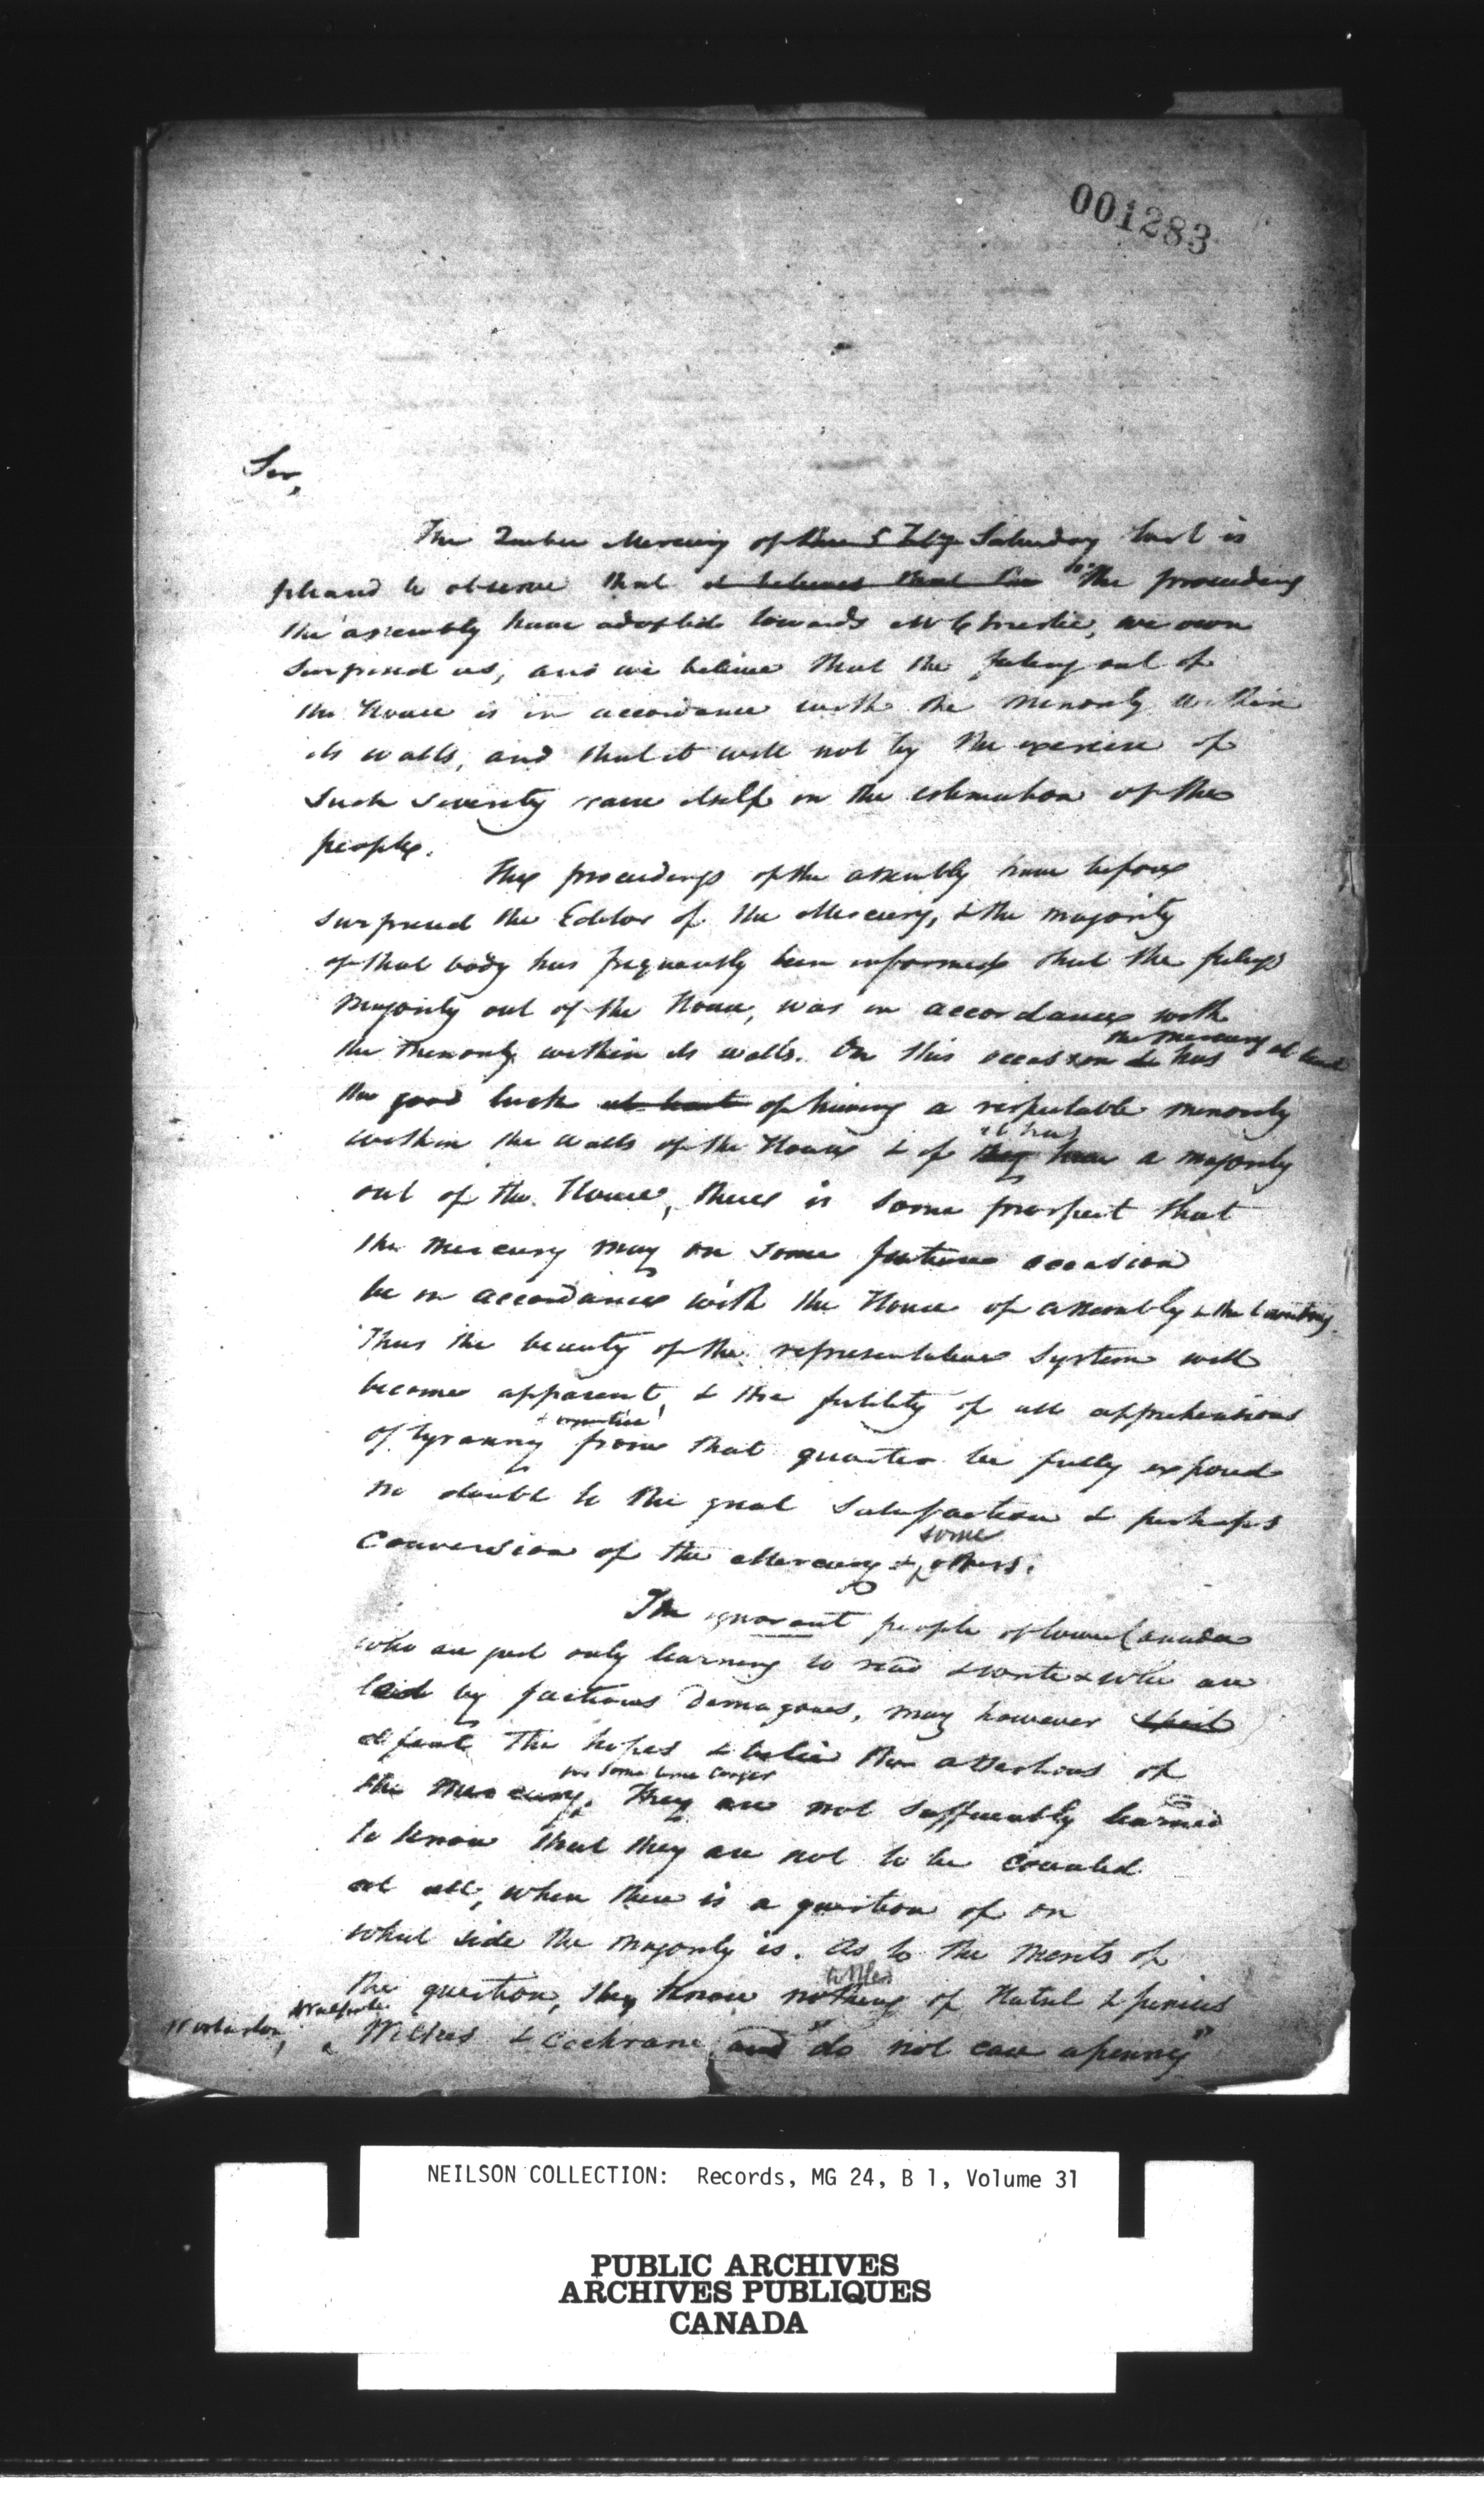 001283
Sir,
The Quebec Mercury of the 5 Feby Saturday last is
pleased to observe that it believes that the "The proceeding
the assembly have adopted towards Mr Christie, we own
surprised us, and we believe that the feeling out of
the House is in accordance with the minority within
its walls, and that it will not by the exercise of
such severity raise itself in the estimation of the
people.
The proceedings of the assembly have before
surprised the Editor of the Mercury, & the majority
of that body has frequently been informed that the feelings
majority out of the House, was in accordance with
the minority within its walls. On this occasion it has
the Mercury at least
the good luck at least of having a respectable minority
within the walls of the House & if they have a majority
it has
out of the House, there is some prospect that
the Mercury may on some future occasion
be in accordance with the House of assembly & the Country.
Thus the beauty of the representative system will
become apparent, & the futility of all apprehensions
of tyranny from that quarter be fully exposed
no doubt to the great satisfaction & perhaps
conversion of the Mercury & others.
some
The ignorant people of Lower Canada
who are just only learning to read & write & who are
led by factious demagogues, may however
defeat the hopes & belie the assertions of
the Mercury. They are not sufficiently learned
for some time longer
to know that they are not to be counted
at all, when there is a question of on
what side the majority is. As to the merits of
the question, they know nothing of Hatsel & Junius
Walpole
Wilkes & Cochrane, and "do not care a penny"
NEILSON COLLECTION: Records, MG 24, B 1, Volume 31
PUBLIC ARCHIVES
ARCHIVES PUBLIQUES
CANADA